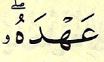 عَهۡدَهُۥٓۖ